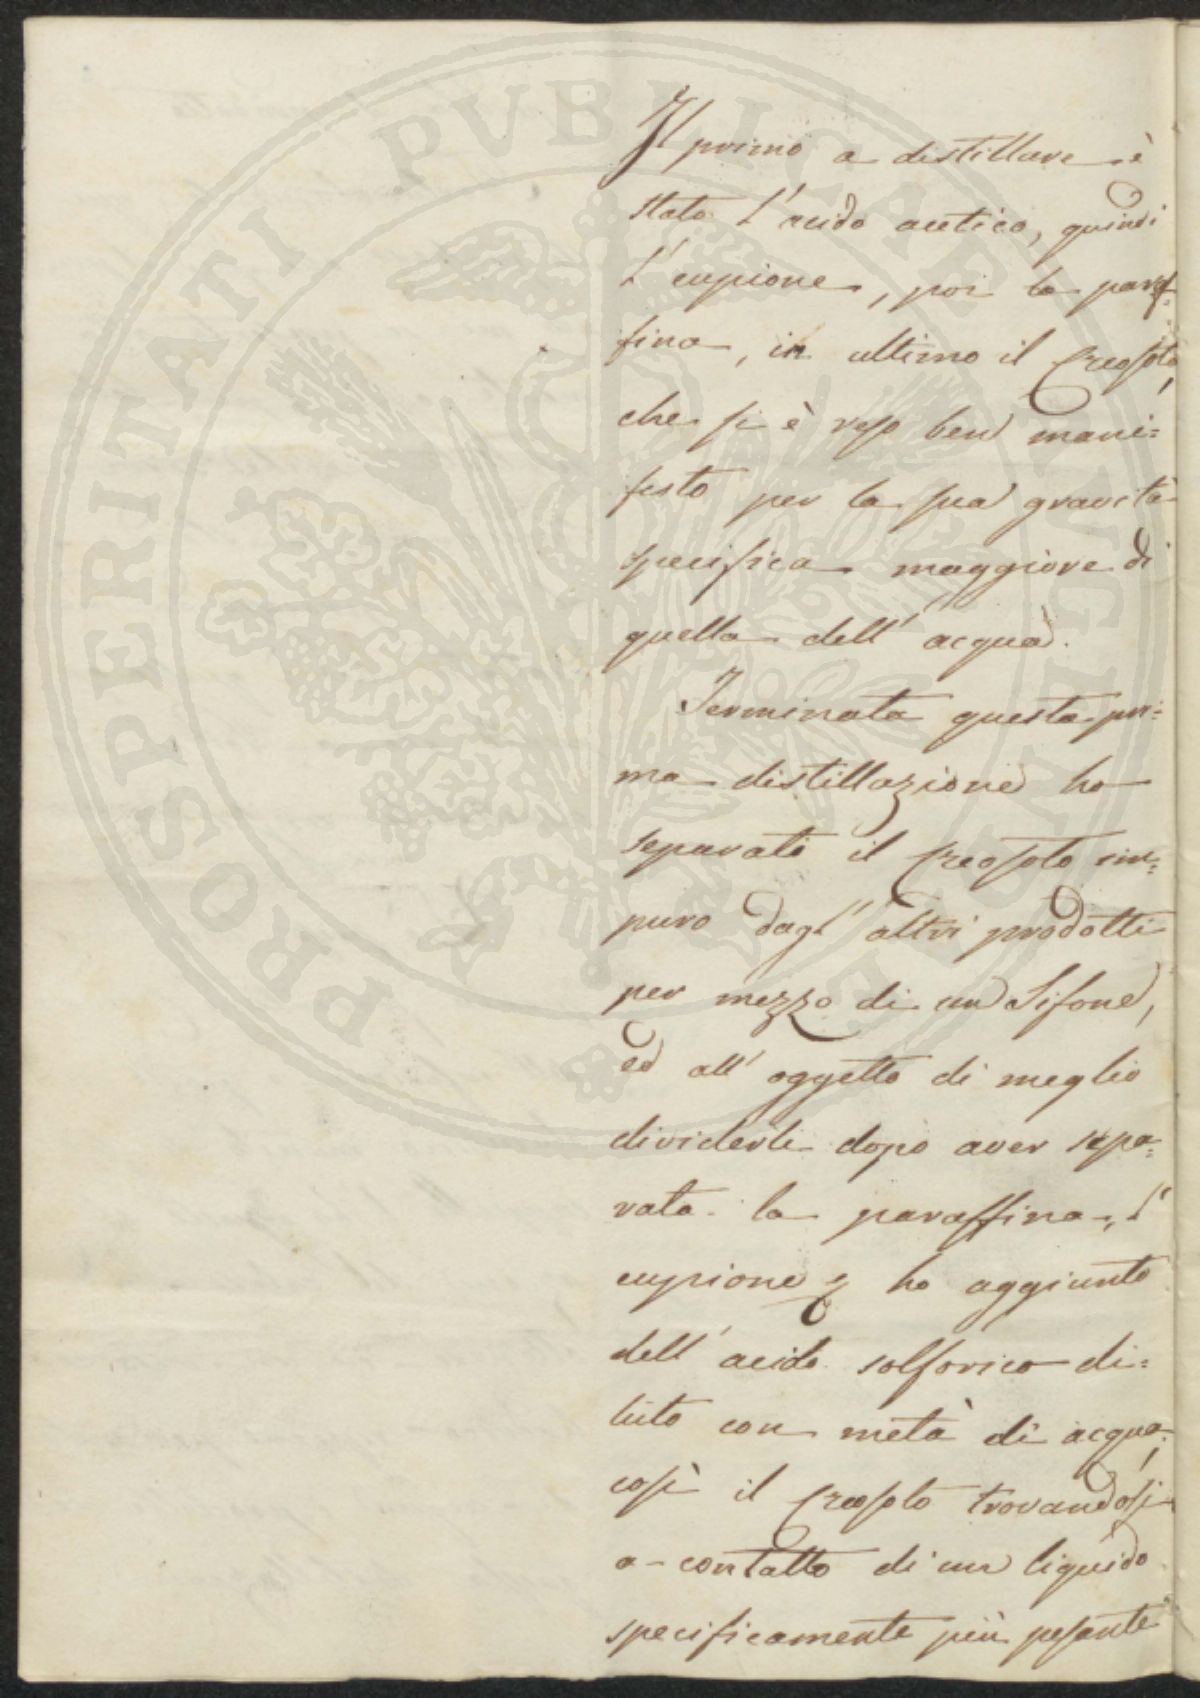 Il primo a distillare è
stato l'acido acetico, quindi
l'eupione, poi la paraf-
fina, in ultimo il Creosoto,
che si è reso ben mani=
festo per la sua gravità
specifica maggiore di
quella dell'acqua.
Terminata questa pri=
ma distillazione ho
separato il Creosoto im=
puro dagl'altri prodotti
per mezzo di un Sifone,
ed all'oggetto di meglio
dividerli dopo aver sepa=
rata la paraffina, l'
eupione & ho aggiunto
dell'acido solforico di=
luto con metà di acqua;
così il Creosoto trovandosi
a contatto di un liquido
specificamente più pesante
PROSPERITATI PUBLICAE AUGENDAE